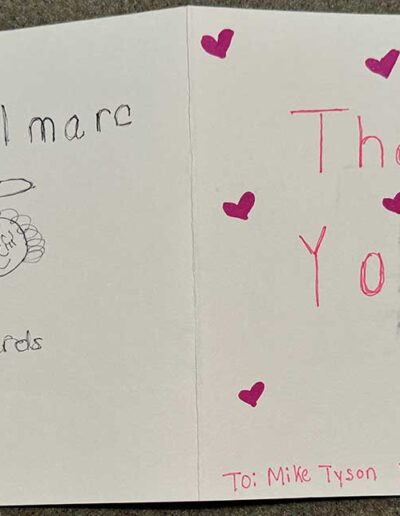 l marc
ards
Tha
Yo
To: Mike Tyson